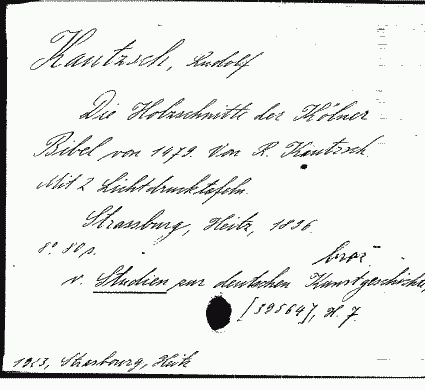 Kautzsch, Rudolf
Die Holzschnitte der Kölner
Bibel von 1479. Von R. Kautzsch.
Mit 2 Lichtdrucktafeln.
Strassburg, Heitz, 1896.
8° 80 p.
broš
v. Studien zur deutschen Kunstgeschichte,
[39564], H. 7.
1913, Strasbourg, Heitz